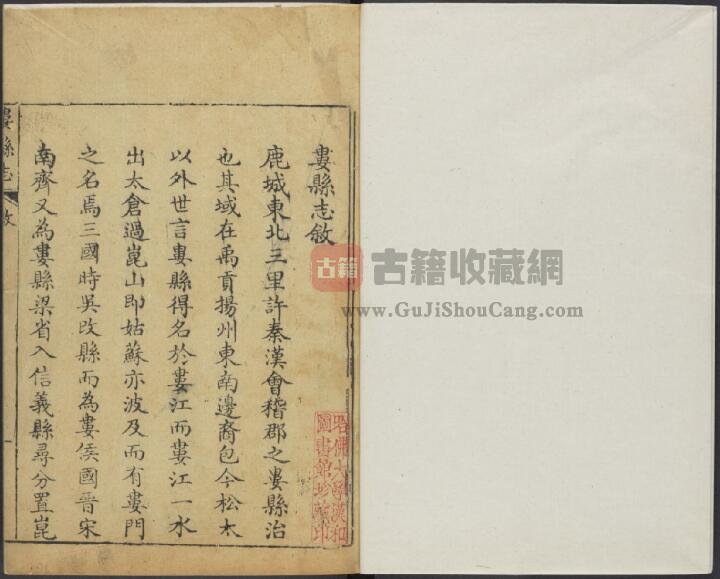 婁縣志敘
鹿城東北三里許秦漢會稽郡之婁縣治
也其域在禹貢揚州東南邊裔包今松太
以外世言婁縣得名於婁江而婁江一水
出太倉過崑山即姑蘇亦波及而有婁門
之名焉三國時吳改縣而為婁侯國晉宋
南齊又為婁縣梁省入信義縣尋分置崑
婁縣志
敘
一
古籍
古籍收藏網
www.GuJiShouCang.com
哈佛大學漢和
圖書館珍藏印